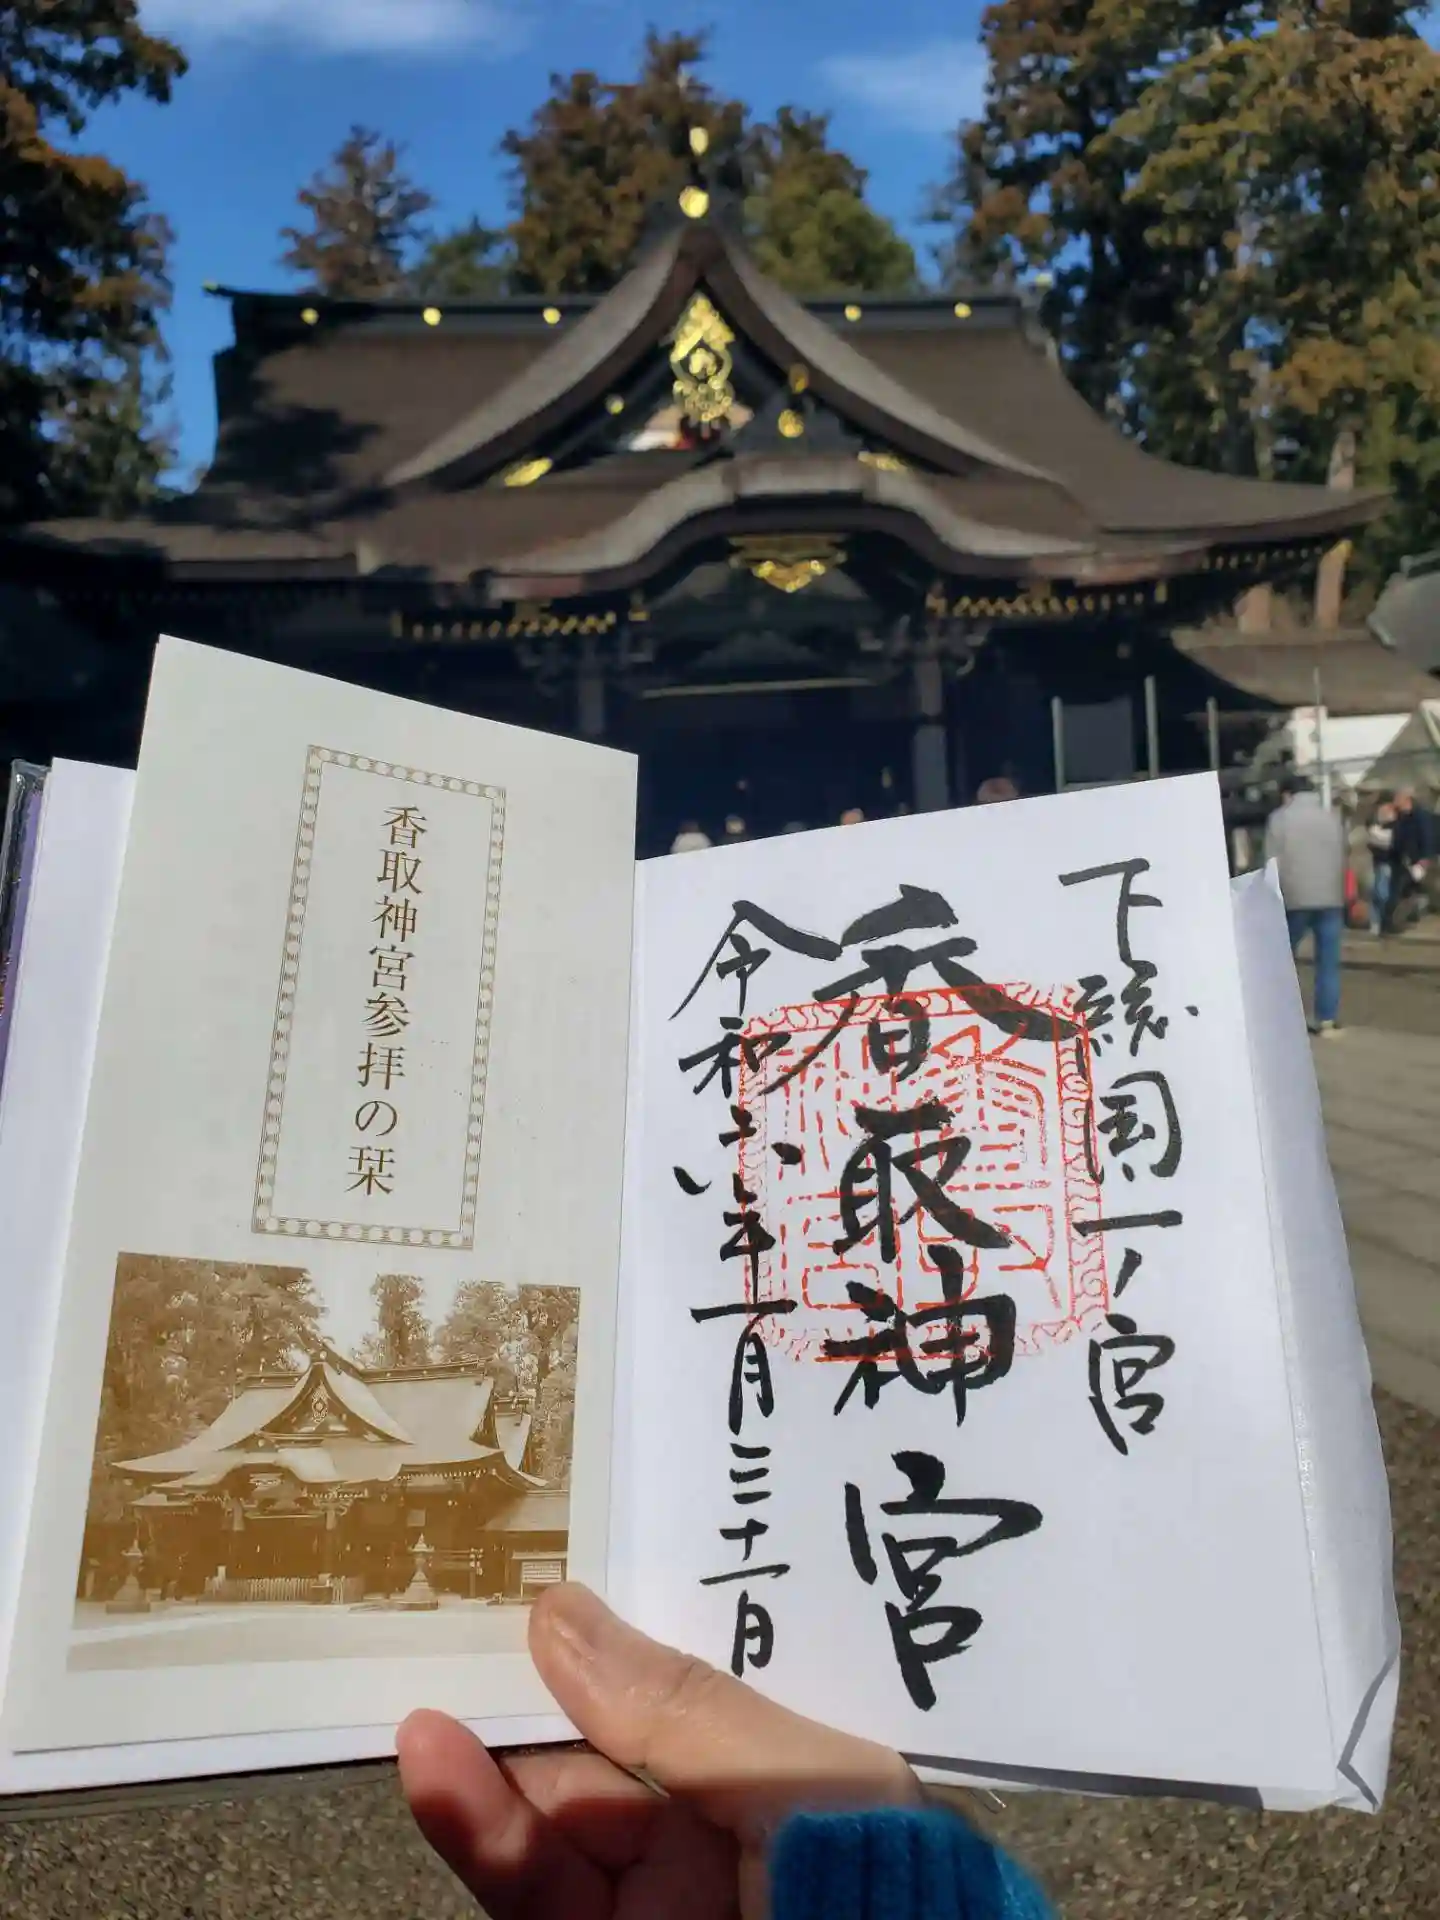 香取神宮参拝の栞
下総国一ノ宮
香取神宮
令和六年一月二十一日